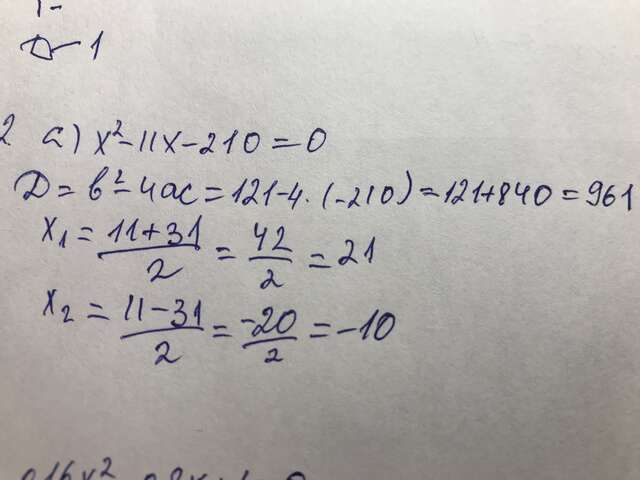 Д – 1
2 а) x² – 11x – 210 = 0
Д = в² – 4ас = 121 – 4 · (–210) = 121 + 840 = 961
x₁ = (11 + 31)/2 = 42/2 = 21
x₂ = (11 – 31)/2 = –20/2 = –10